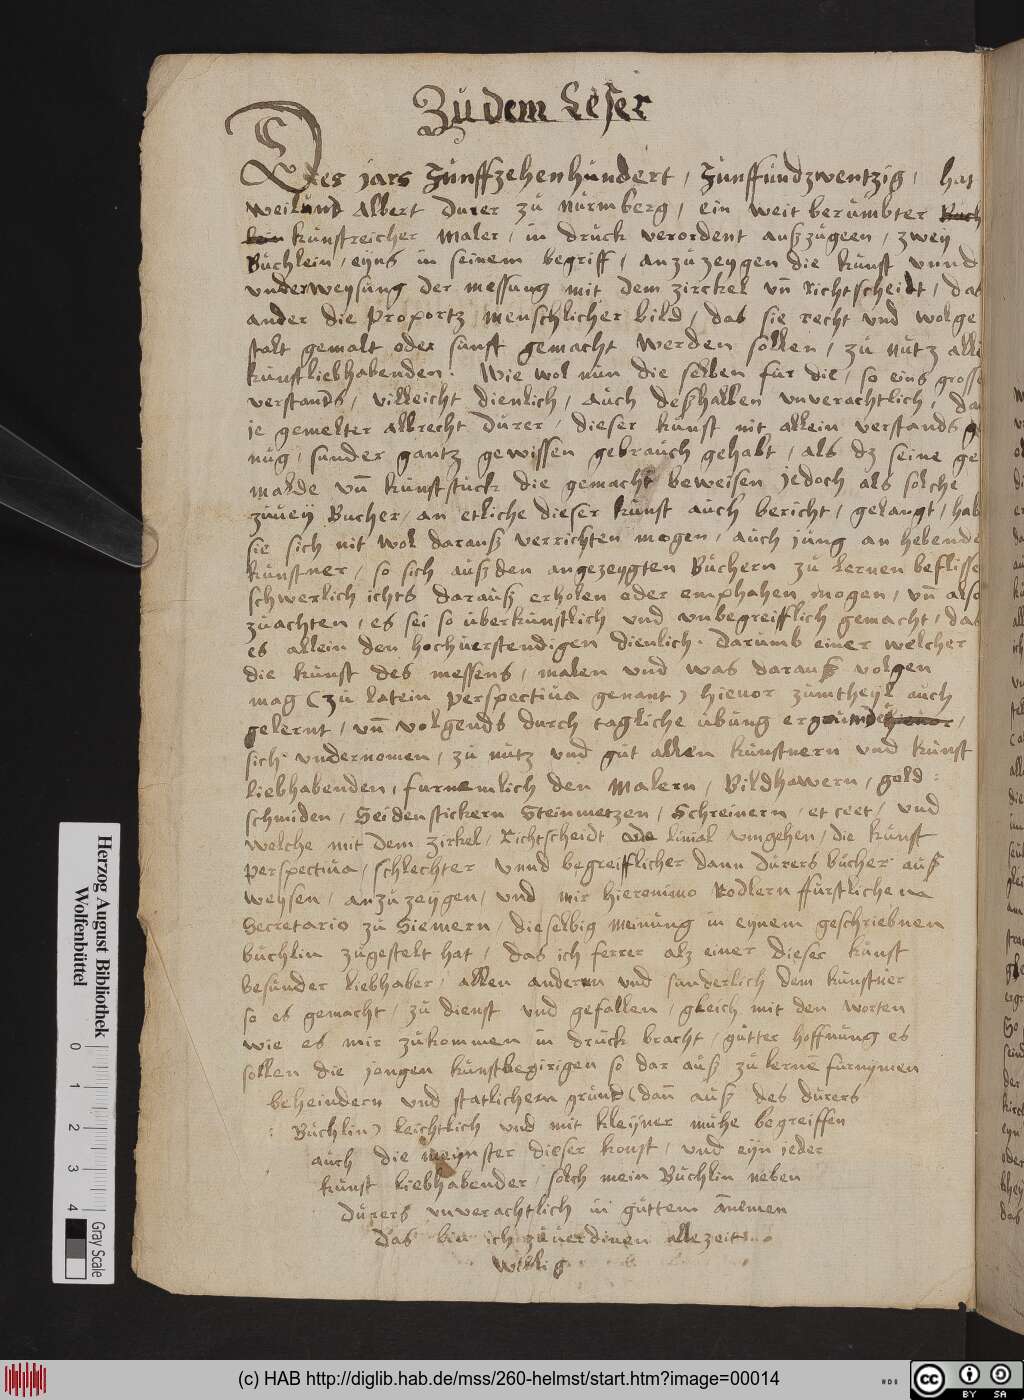 Zů dem Leser
Des jars Fünffzehenhundert, Fünffundzwentzig, hat
weilund Albert Durer zů Nürmberg, ein weit berümbter Buch
lein künstreicher Maler, in druck verordent außzůgeen, zwey
Büchlein, eyns in seinem begriff, anzůzeygen die künst vnnd
vnderweysung der messung mit dem zirckel vñ Richtscheidt, das
ander die Proportz menschlicher bild, das sie recht vnd wolge
stalt gemalt oder sunst gemacht werden sollen, zů nutz alle
künstliebhabenden. Wie wol nun die selben für die, so eins grosse
verstands, villeicht dienlich, auch deßhalben vnverachtlich, das
je gemelter Albrecht Dürer, dieser künst nit allein verstands ge
nug, sunder gantz gewissen gebrauch gehabt, als dz seine ge
malde vñ künststück die gemacht beweisen jedoch als solche
zwey Bücher, an etliche dieser künst auch bericht, gelangt, hab
sie sich nit wol darauß verrichten mogen, auch jung an hebende
künstner, so sich auß den angezeygten Büchern zů lernen beflisse
schwerlich ichts darauß erholen oder emphahen mogen, vñ also
zůachten, es sei so überkünstlich vnd vnbegreifflich gemacht, das
es allein den hochuerstendigen dienlich. Darumb einer welcher
die künst des messens, malen vnd was darauß volgen
mag (zů latein perspectiua genant) hieuor zumtheyl auch
gelernt, vñ volgends durch tagliche übung ergrundet hieuor,
sich vndernomen, zů nutz vnd gůt allen künstnern vnd künst
liebhabenden, furnemlich den Malern, Bildhawern, gold:
schmiden, Seidenstickern Steinmetzen, Schreinern, et cet, vnd
welche mit dem zirkel, Richtscheidt ode linial vmgehen, die künst
perspectiua, schlechter vnnd begreifflicher dann Dürers bücher auß
weysen, anzůzeygen, vnd mir Hieronimo Rodlern ffürstlichem
Secretario zů Siemern, dieselbig meinung in eynem geschriebnen
büchlin zůgestelt hat, das ich ferrer alz einer dieser künst
besunder liebhaber, allen anderen vnd sunderlich dem künstner
so es gemacht, zů dienst vnd gefallen, gleich mit den worten
wie es mir zůkommen in druck bracht, gůtter hoffnung es
sollen die jongen künstbegirigen so dar auß zů lernē furnymen
beheindern vnd statlichern grund (dañ auß des Dürers
Büchlin) leichtlich vnd mit kleyner mühe begreiffen
auch die meynster dieser konst, vnd eyn jeder
künst liebhabender, solch mein Büchlin neben
Dürers vnverachtlich in gůttem annemen
das bin ich zůuerdinen allezeit
willig
Herzog August Bibliothek
Wolfenbüttel
0 1 2 3 4
Gray Scale
(c) HAB http://diglib.hab.de/mss/260-helmst/start.htm?image=00014
cc BY SA